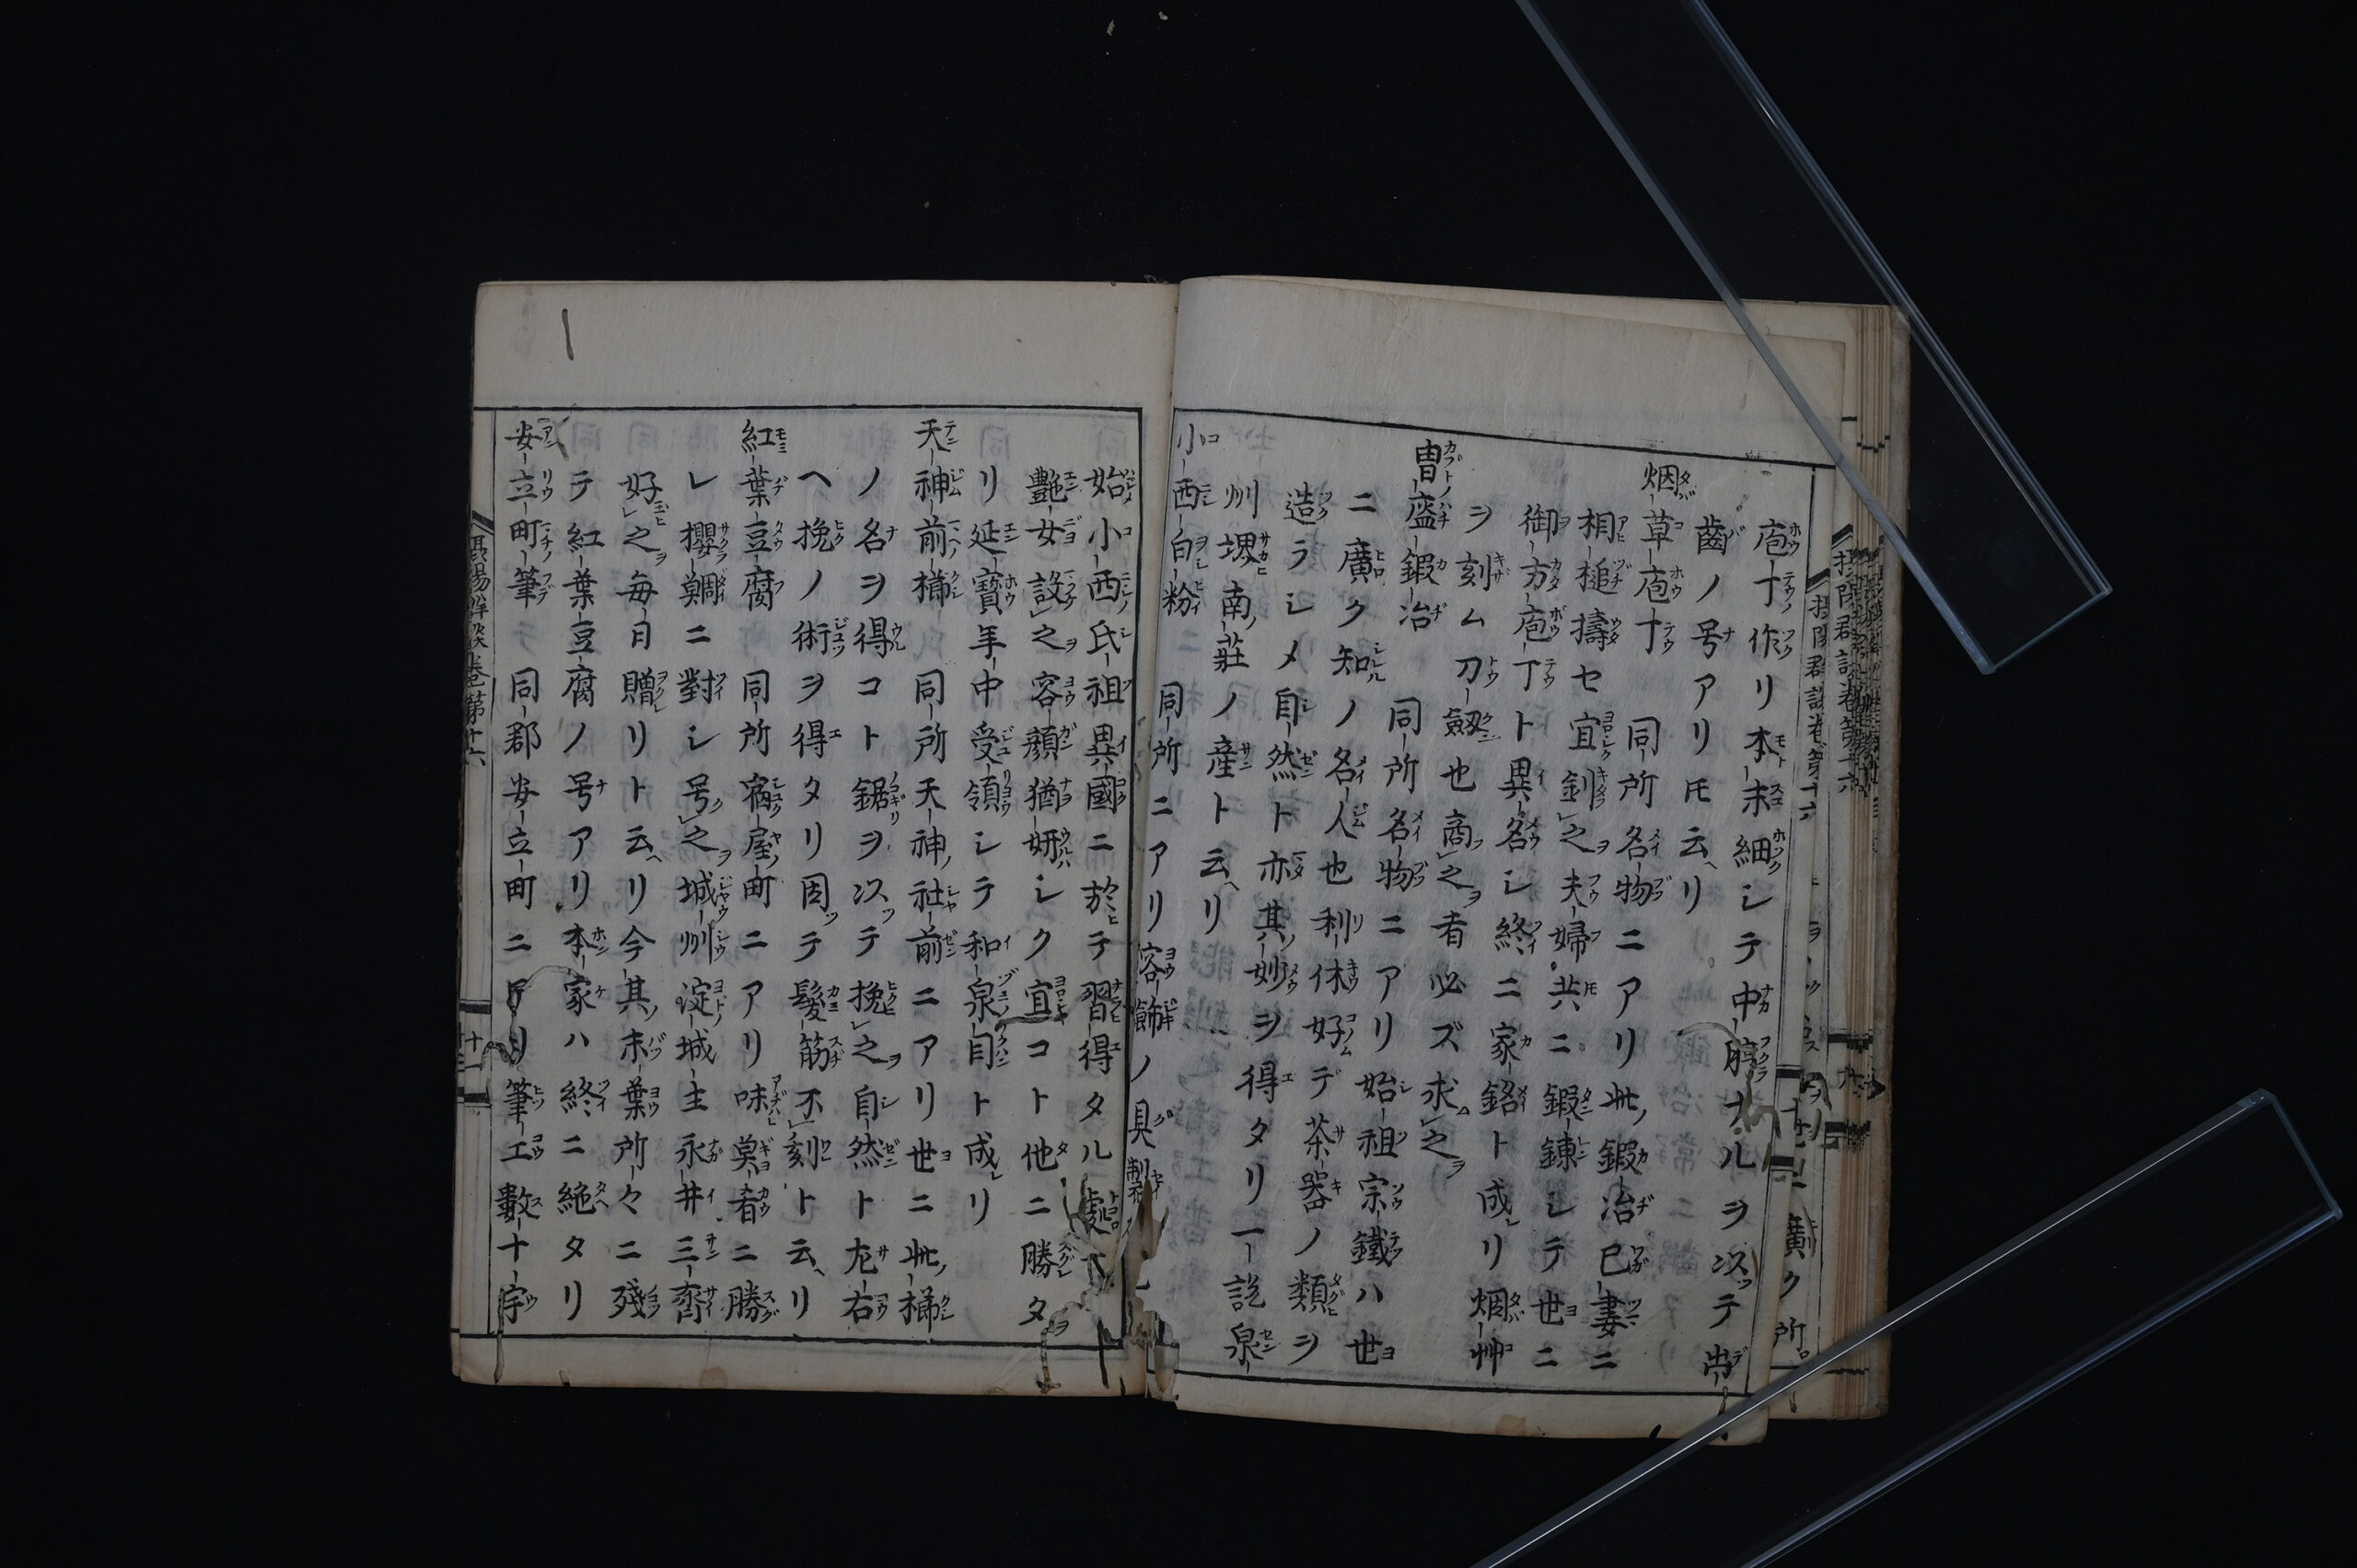 庖丁作リ本末細シテ中脝ナルヲ以テ出
齒ノ号アリ𪜈云リ
烟草庖丁 同所名物ニアリ此鍛冶已妻ニ
相槌擣セ宜釗之夫婦共ニ鍛錬シテ世ニ
御方庖丁ト異名シ終ニ家銘ト成リ烟艸
ヲ刻ム刀劔也商之者必ズ求之
冑盔鍛冶 同所名物ニアリ始祖宗鐵ハ世
ニ廣ク知ノ名人也利休好デ茶器ノ類ヲ
造ラシメ自然ト亦其妙ヲ得タリ一説泉
州堺南莊ノ産ト云リ
小西白粉 同所ニアリ容餝ノ具製
始小西氏祖異國ニ於テ習得タル處
艷女設之容顔猶妍シク宜コト他ニ勝タ
リ延寶年中受領シテ和泉目ト成リ
天神前櫛 同所天神社前ニアリ世ニ此櫛
ノ名ヲ得コト鋸ヲ以テ挽之自然ト左右
ヘ挽ノ術ヲ得タリ因テ髮筋不刻ト云リ
紅葉豆腐 同所宿屋町ニアリ味美肴ニ勝
レ櫻鯛ニ對シ号之城州淀城主永井三齋
好之每日贈リト云リ今其末葉所々ニ殘
テ紅葉豆腐ノ号アリ本家ハ終ニ絶タリ
安立町筆 同郡安立町ニアリ筆工數十宇